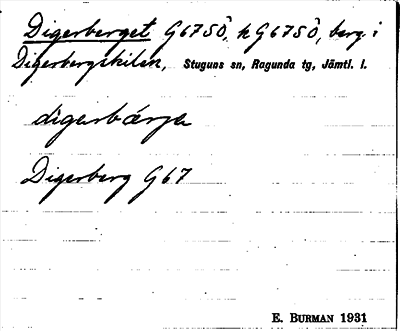 Digerberget G67SÖ, h G67SÖ, berg i
Digerbergskilen, Stuguns sn, Ragunda tg, Jämtl. l.
digerbárje
Digerberg G67
E. BURMAN 1931